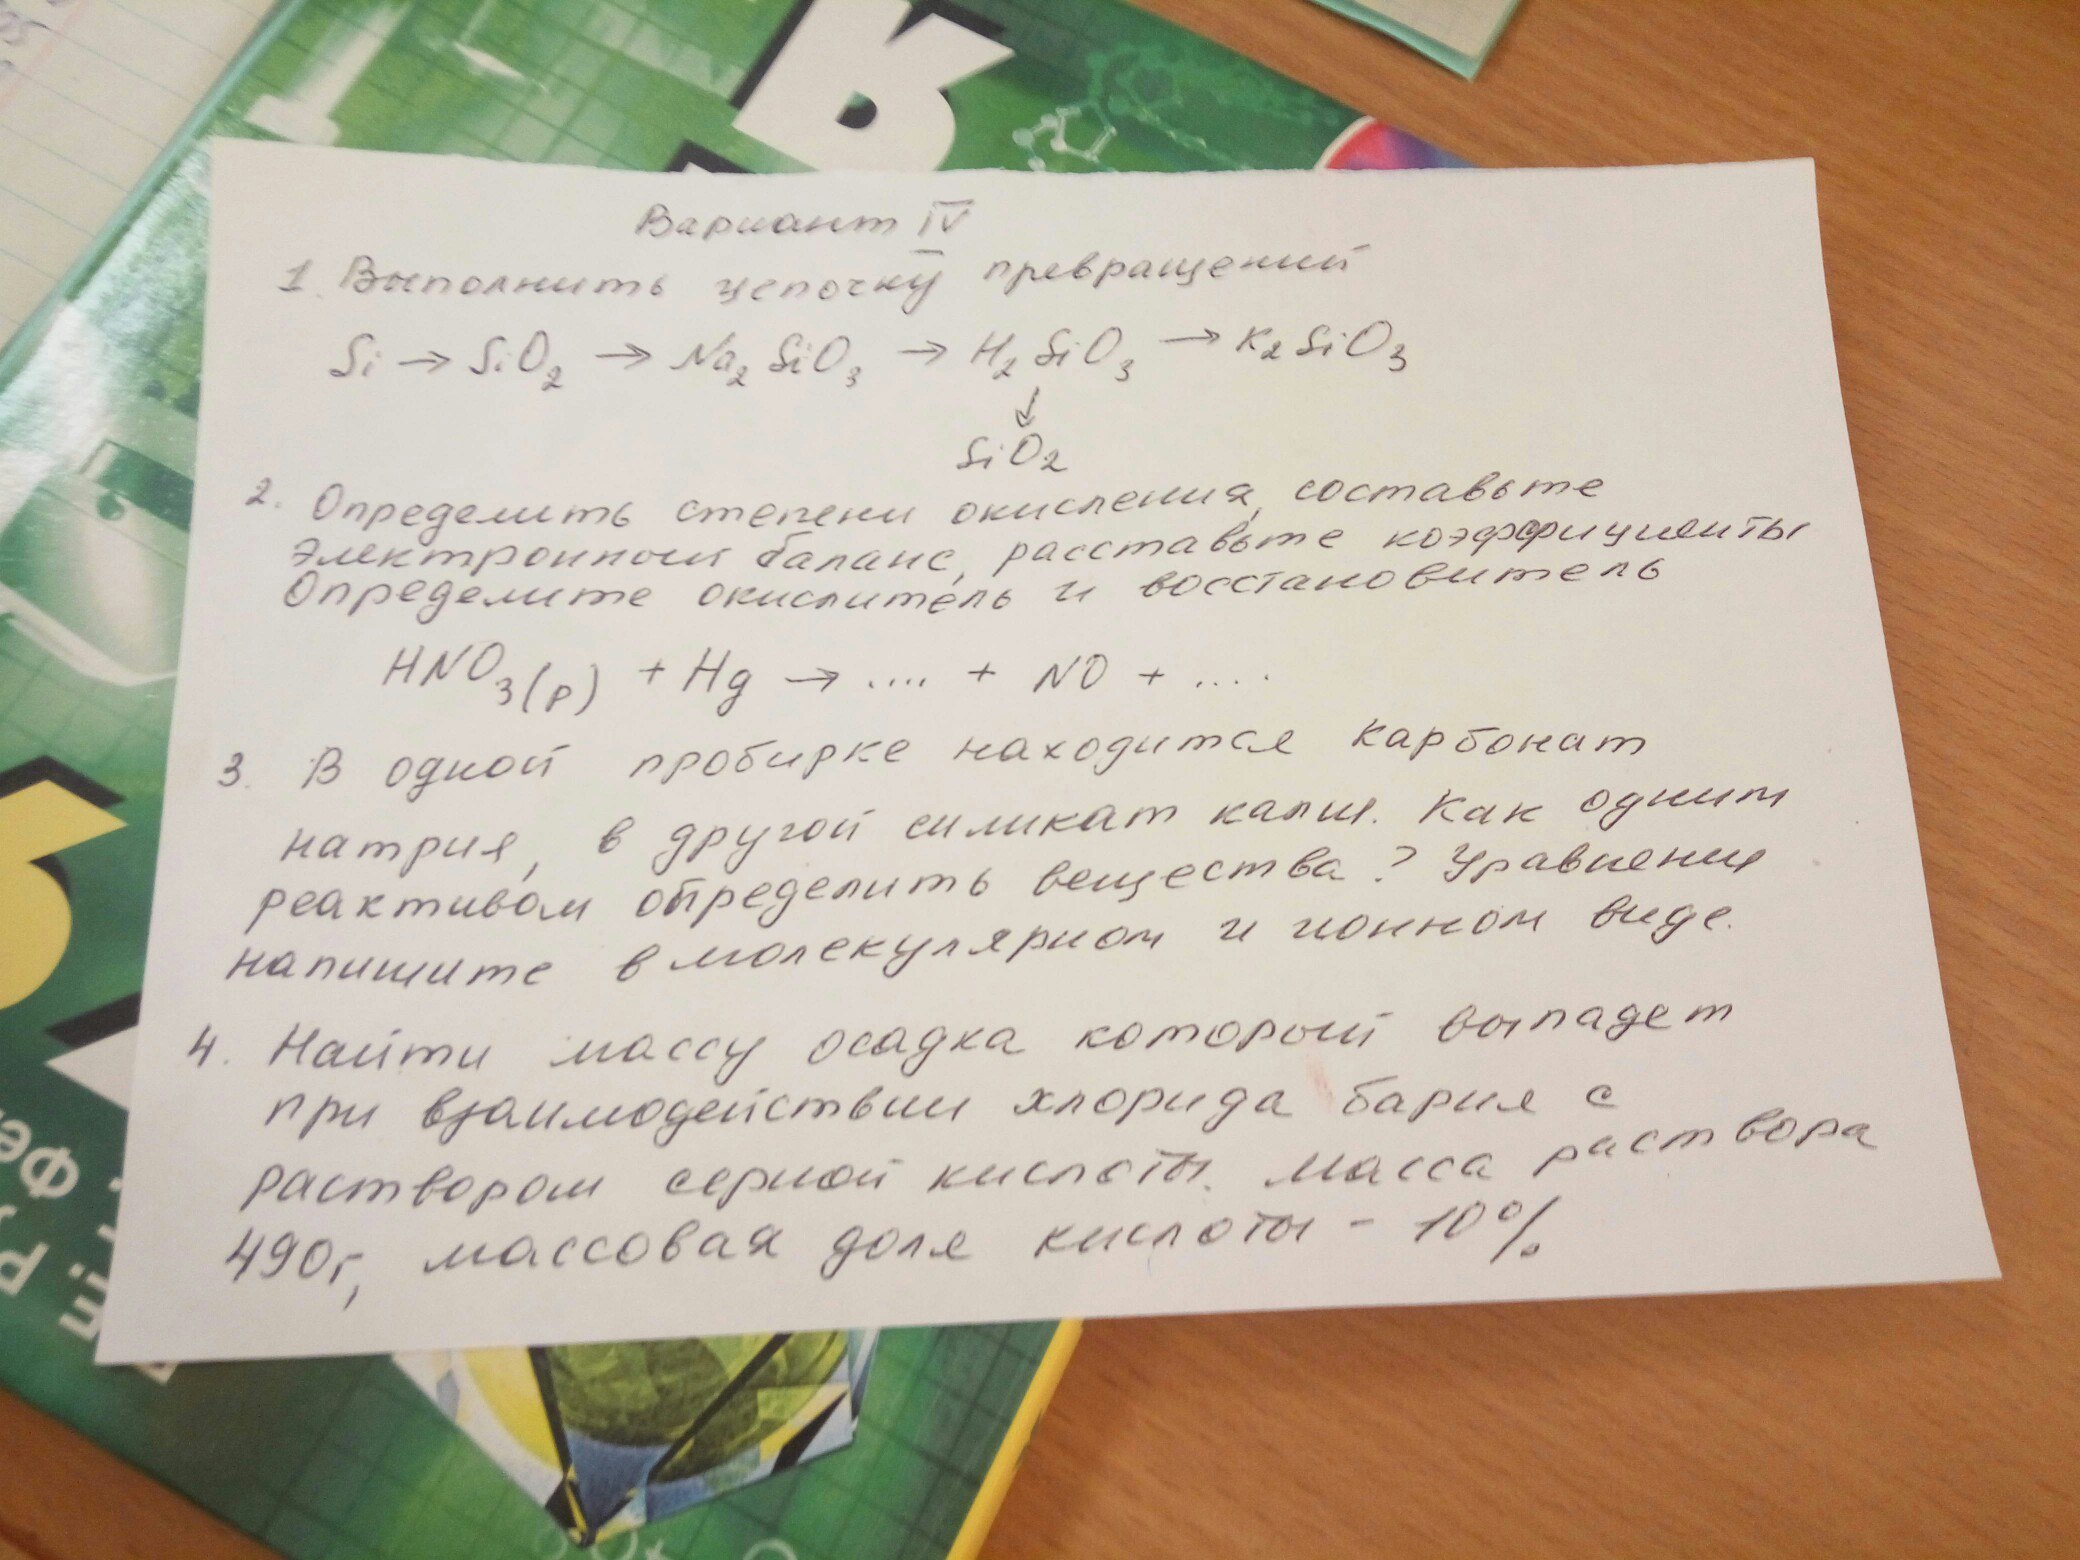 Вариант IV
1. Выполнить цепочку превращений
Si → SiO2 → Na2SiO3 → H2SiO3 → K2SiO3
↓
SiO2
2. Определить степени окисления, составьте
электронный баланс, расставьте коэффициенты
Определите окислитель и восстановитель
HNO3(р) + Hg → .... + NO + ....
3. В одной пробирке находится карбонат
натрия, в другой силикат калия. Как одним
реактивом определить вещества? Уравнения
напишите в молекулярном и ионном виде.
4. Найти массу осадка который выпадет
при взаимодействии хлорида бария с
раствором серной кислоты. Масса раствора
490г, массовая доля кислоты - 10%